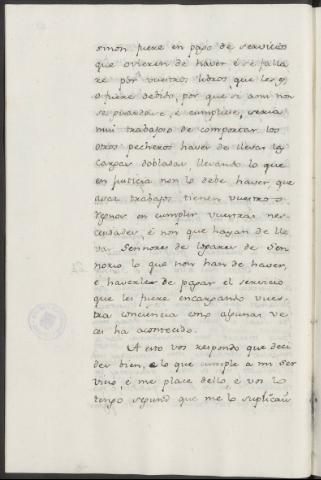 sinon fuere en pago de servicios
que ovieren de haver é se falla
re por vuestros libros que les es
o fuere debido, por que si asi non
se guardase, é cumpliese, seria
mui trabajoso de comportar los
otros pecheros haver de llevar las
cargas dobladas, llevando lo que
en justicia non lo debe haver, que
asaz trabajos tienen vuestros
en cumplir vuestras nes-
cesidades, é non que hayan de lle
var Sennores de logares de Sen
norio lo que non han de haver,
é haverles de pagar el servicio
que les fuere encargando vues-
tra conciencia como algunas ve
ces ha acontecido.
A esto vos respondo que deci
des bien, e lo que cumple a mi ser
vicio, é me place dello, é vos lo
tengo segund que me lo suplicais